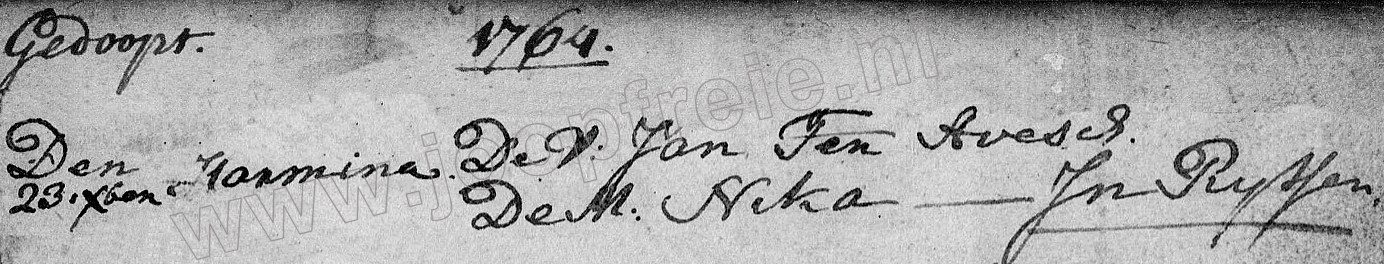 Gedoopt. 1764.
Den Harmina. De V. Jan Ten Avest.
23. Xber De M. Neka — In Ryssen.
www.joopfreie.nl